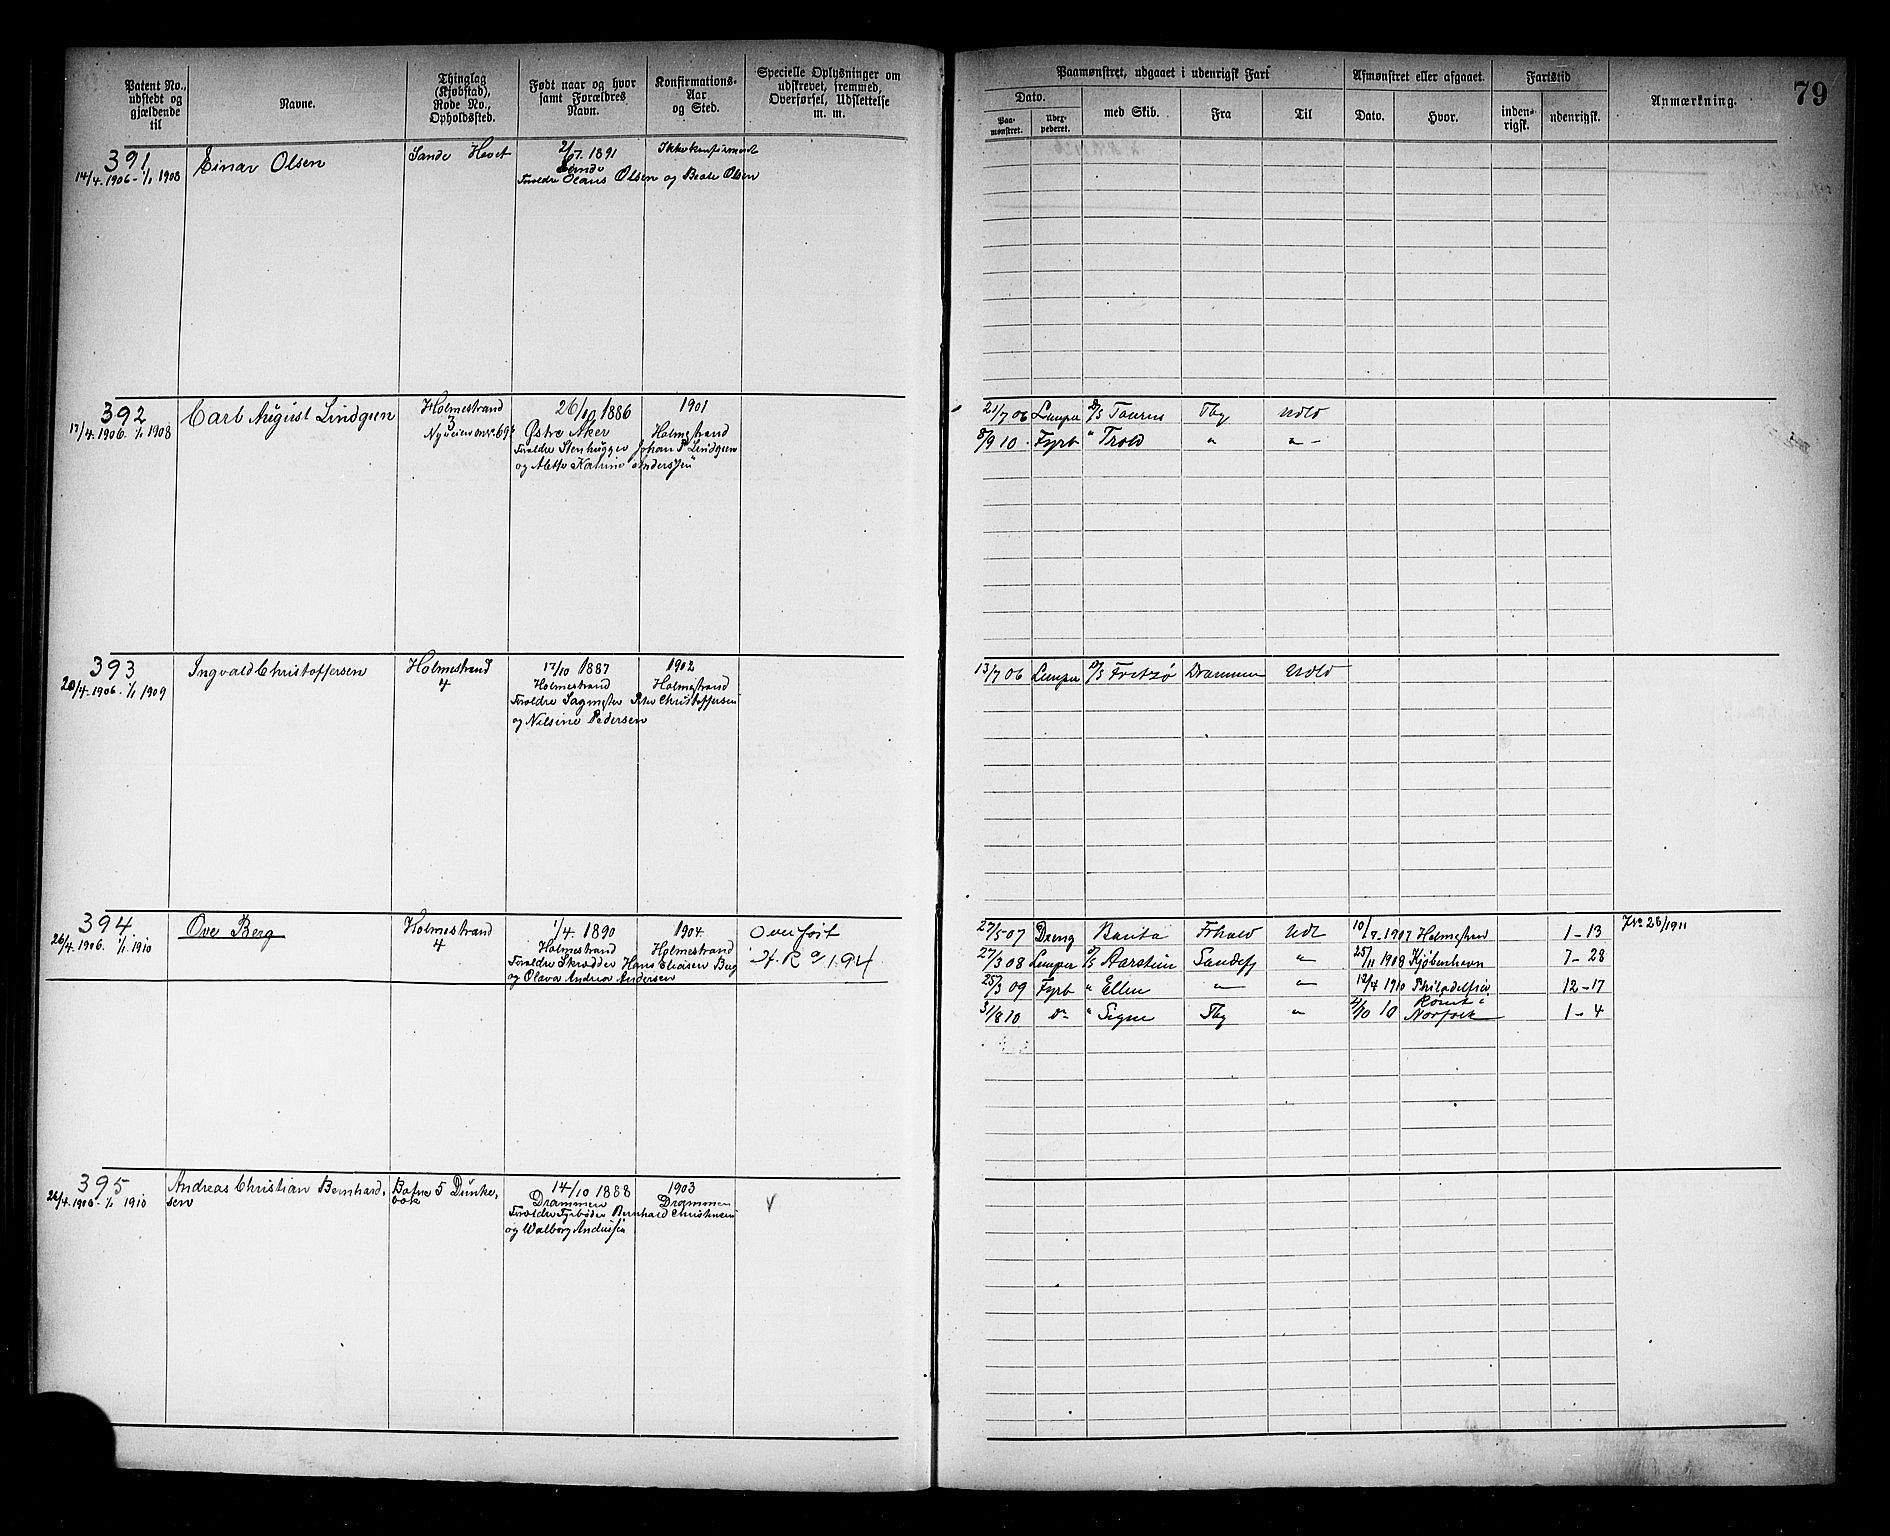 Patent No., udstedt og gjældende til
Navne.
Thinglag (Kjøbstad), Rode No., Opholdssted.
Født naar og hvor samt Forældres Navn.
Konfirmations-Aar og Sted.
Specielle Oplysninger om udskrevet, fremmed, Overførsel, Udslettelse m. m.
Paamønstret, udgaaet i udenrigsk Fart
Afmønstret eller afgaaet.
Fartstid
Anmærkning.
79
Dato.
Paa-mønstret.
med Skib.
Fra
Til
Dato.
Hvor.
inden-rigsk.
udenrigsk.
391
14/4. 1906 - 1/1 1908
Einar Olsen
Sande
2/7. 1891
Sande
Forældre Olaus Olsen og Beate Olsen
Ikke konfirmert
392
17/4. 1906. 1/1 1908
Carl August Lindgren
Holmestrand
3
26/10 1886
Østre Aker
Forældre Stenhugger Johan P Lindgren
og Alette Katrine Anderssen
1901
Holmestrand
21/7 06 Lemper D/S Taurus Tbg Udld
8/9 10. Fyrb " Trold " " -
393
20/4. 1906. 1/1 1909
Ingvald Christoffersen
Holmestrand
4
17/10 1887
Holmestrand
Forældre Sagmester Peter Christoffersen
og Nilsine Pedersen
1902
Holmestrand
13/7 06 Lemper D/S Fritzö Drammen Udld
394
26/4. 1906. 1/1 1910
Ove Berg
Holmestrand
4
1/4. 1890
Holmestrand
Forældre Skrædder Hans Eliasen Berg
og Olava Andrea Andersen
1904
Holmestrand
Overført
H. R. 194
27/5 07 Dreng Banta Frhald Udl 10/9 1907 Holmestrand 1 - 13
28/1911
27/3 08 Lemper D/S Aarstein Sandefj " 25/11 1908 Kjøbenhavn 7 - 28
25/3 09 Fyrb " Ellen " " 12/4 1910 Philadelfia 12 - 17
31/8 10 do " Signe Tbg " 2/10 10 Rømt i Norfolk 1 - 4
395
26/4. 1906 - 1/1 1910
Andreas Christian Bernhard-
sen
Botne 5
14/10 1888
Drammen
Forældre Fyrbøder Bernhard Christensen
og Walborg Andersen
1903
Drammen